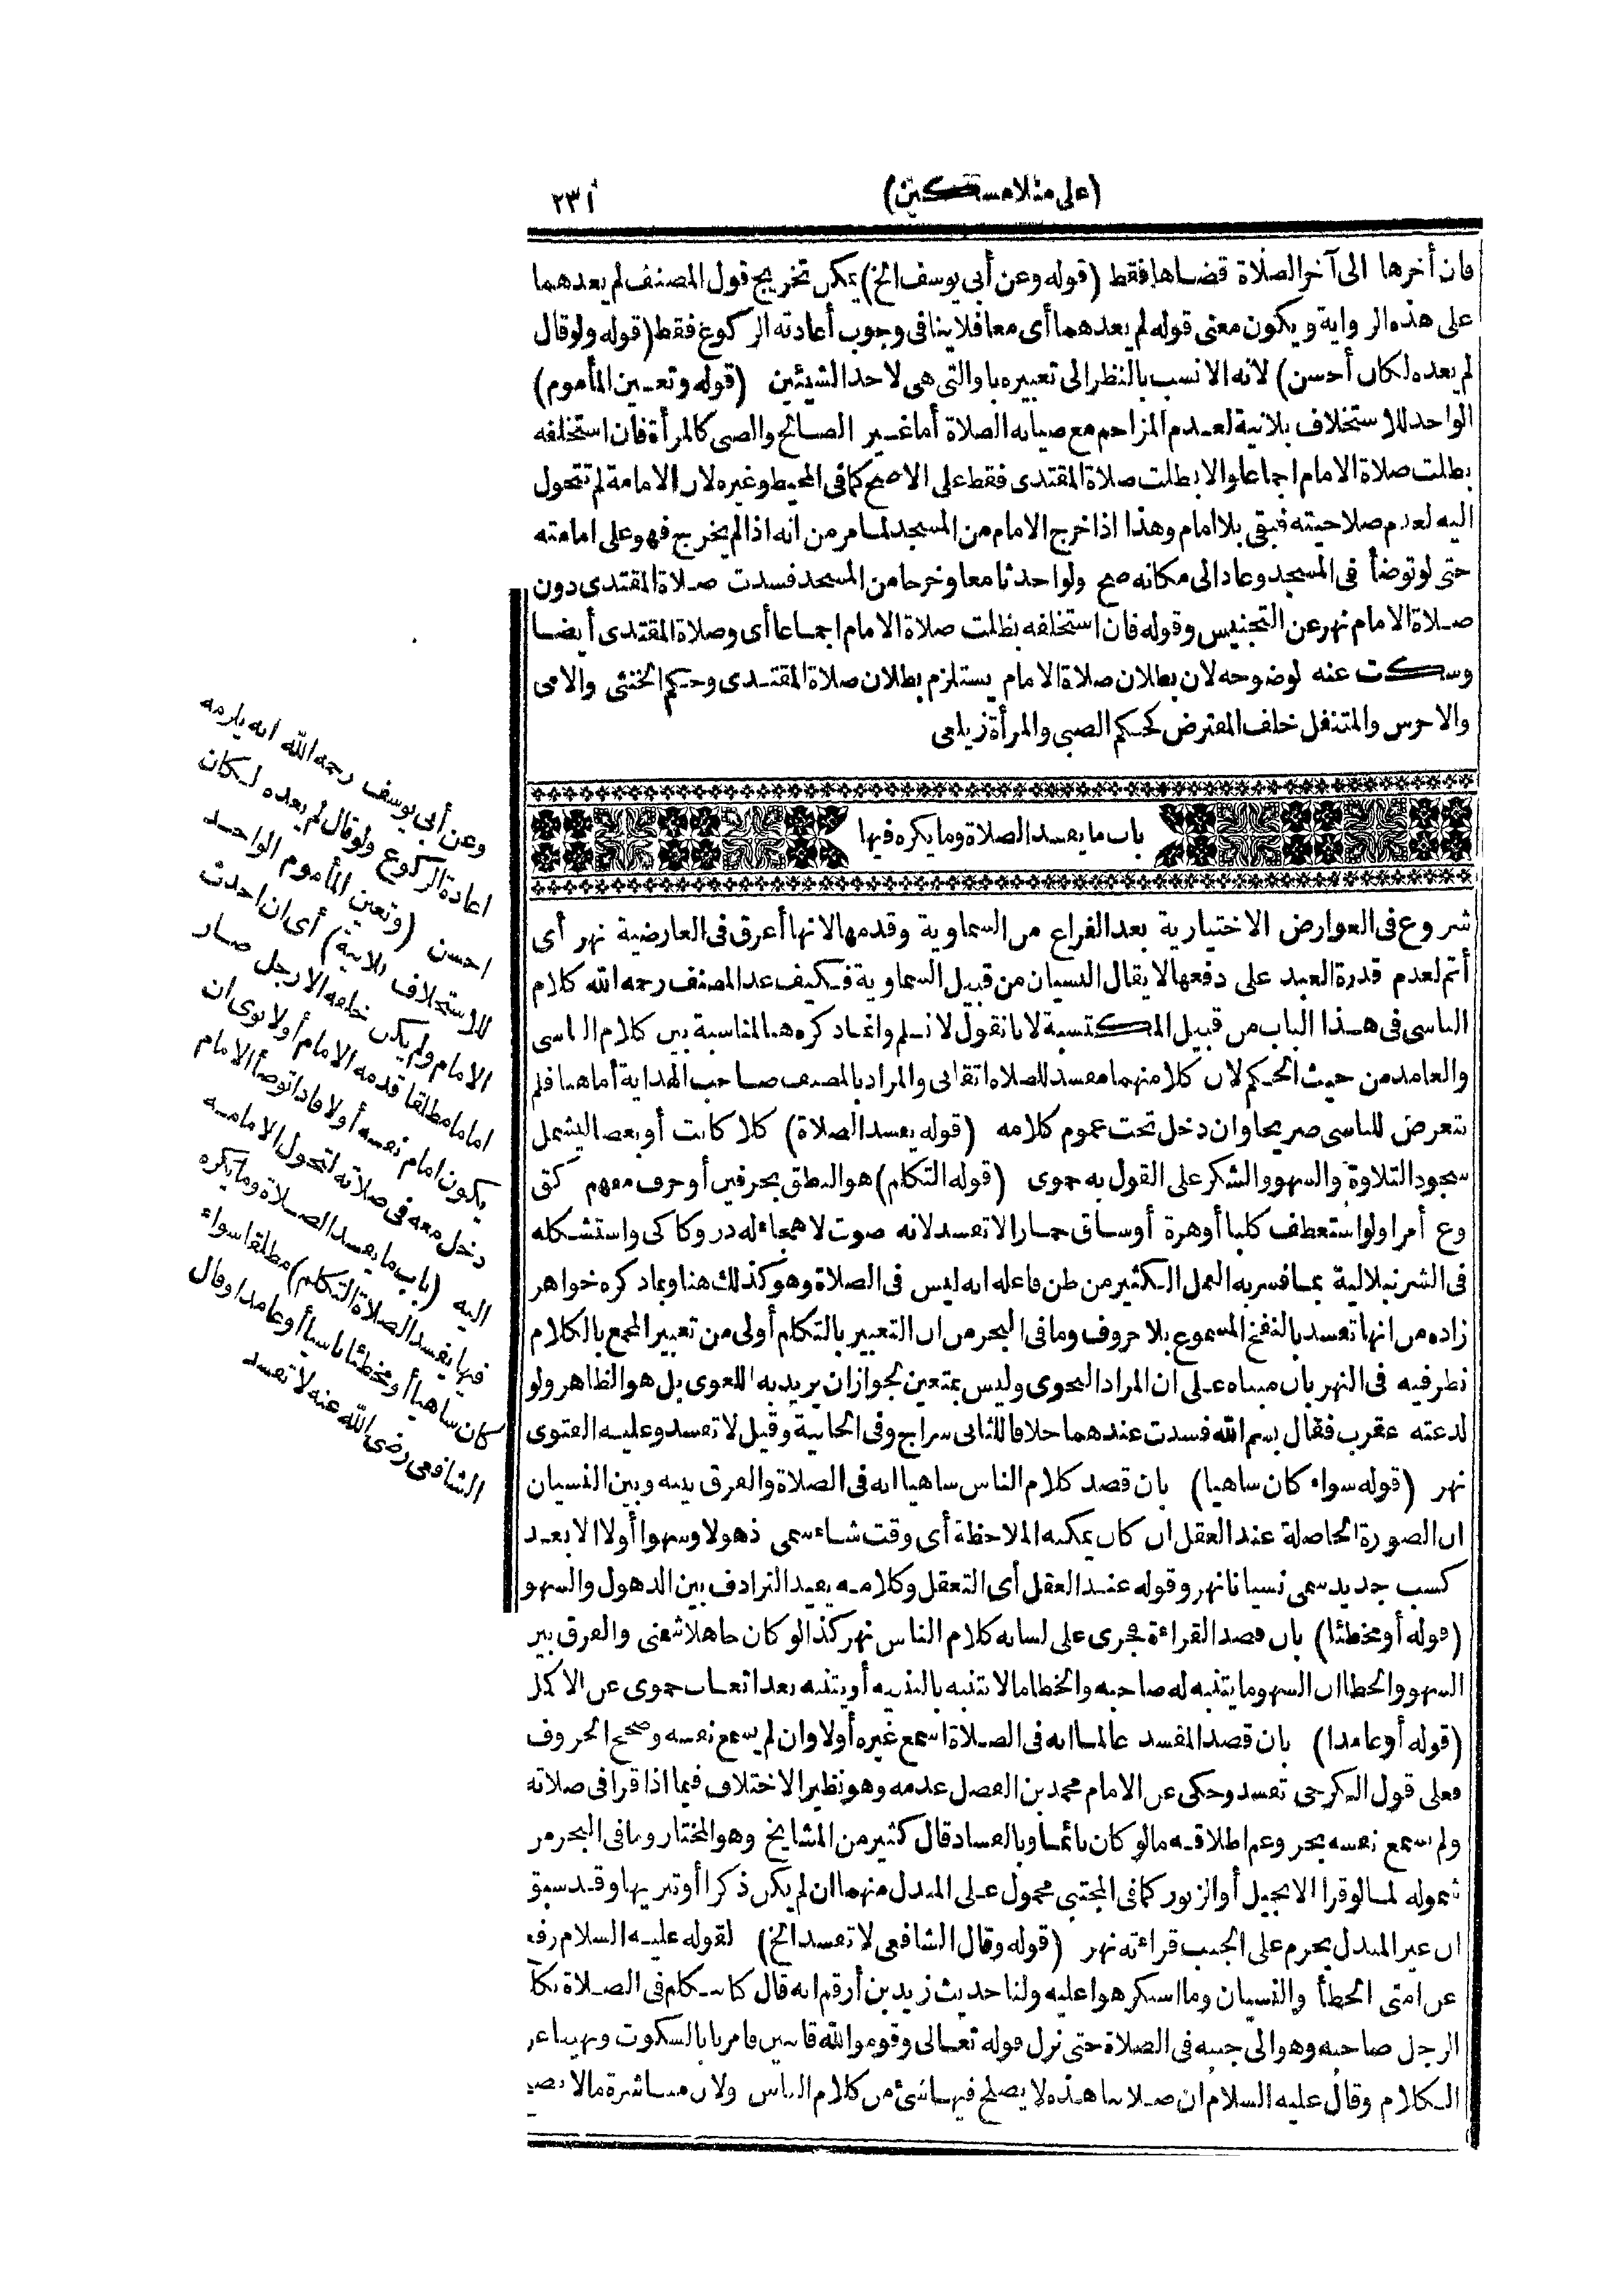 (على منلا مسكين)
٢٣١
فان أخرها الى آخر الصلاة قضاها فقط (قوله وعن أبى يوسف الخ) يمكن تخريج قول المصنف لم يعدهما
على هذه الرواية ويكون معنى قوله لم يعدهما أى معا فلا ينافى وجوب أعادته الركوع فقط (قوله ولو قال
لم يعده لكان أحسن) لانه الانسب بالنظر الى تعبيره باو التى هى لاحد الشيئين (قوله وتعين المأموم)
الواحد للاستخلاف بلانية لعدم المزاحم مع صيانه الصلاة أما غير الصالح والصبى كالمرأة فان استخلفه
بطلت صلاة الامام اجماعا والا بطلت صلاة المقتدى فقط على الاصح كما فى المحيط وغيره لان الامامة لم تتحول
اليه لعدم صلاحيته فبقى بلا امام وهذا اذا خرج الامام من المسجد لما مر من انه اذا لم يخرج فهو على امامته
حتى لو توضأ فى المسجد وعاد الى مكانه صح ولو احدثا معا وخرجا من المسجد فسدت صلاة المقتدى دون
صلاة الامام نهر عن التجنيس وقوله فان استخلفه بطلت صلاة الامام اجماعا أى وصلاة المقتدى أيضا
وسكت عنه لوضوحه لان بطلان صلاة الامام يستلزم بطلان صلاة المقتدى وحكم الخنثى والامى
والاخرس والمتنفل خلف المفترض كحكم الصبى والمرأة زيلعى
باب ما يفسد الصلاة وما يكره فيها
شروع فى العوارض الاختيارية بعد الفراغ من السماوية وقدمها لانها أعرق فى العارضية نهر أى
أتم لعدم قدرة العبد على دفعها لا يقال النسيان من قبيل السماوية فكيف عد المصنف رحمه الله كلام
الناسى فى هذا الباب من قبيل المكتسبة لانا نقول لا نسلم وانما ذكره هنا لمناسبة بين كلام الناسى
والعامد من حيث الحكم لان كلا منهما مفسد للصلاه اتقانى والمراد بالمصنف صاحب الهداية أما هنا فلم
يتعرض للناسى صريحا وان دخل تحت عموم كلامه (قوله يفسد الصلاة) كلا كانت أو بعضا ليشمل
سجود التلاوة والسهو والشكر على القول به حموى (قوله التكلم) هو النطق بحرفين أو حرف مفهم كق
وع أمرا ولو استعطف كلبا أو هرة أو ساق حمارا لا تفسد لانه صوت لا هجاء له در وكاكى واستشكله
فى الشرنبلالية بما فسر به العمل الكثير من ظن فاعله انه ليس فى الصلاة وهو كذلك هنا وبما ذكره خواهر
زاده من انها تفسد بالنفخ المسموع بلا حروف وما فى البحر من ان التعبير بالتكلم أولى من تعبير المجمع بالكلام
نظر فيه فى النهر بان مبناه على ان المراد النحوى وليس بمتعين لجواز ان يريد به اللغوى بل هو الظاهر ولو
لدغته عقرب فقال بسم الله فسدت عندهما خلافا للثانى سراج وفى الخانية وقيل لا تفسد وعليه الفتوى
نهر (قوله سواء كان ساهيا) بان قصد كلام الناس ساهيا انه فى الصلاة والفرق بينه وبين النسيان
ان الصورة الحاصلة عند العقل ان كان يمكنه الملاحظة أى وقت شاء سمى ذهولا وسهوا أولا الا بعد
كسب جديد سمى نسيانا نهر وقوله عند العقل أى التعقل وكلامه يفيد الترادف بين الذهول والسهو
(قوله أو مخطئا) بان قصد القراءة فجرى على لسانه كلام الناس نهر كذا لو كان جاهلا شمنى والفرق بين
السهو والخطا ان السهو ما يتنبه له صاحبه والخطا ما لا يتنبه بالتنبيه أو يتنبه بعد اتعاب حموى عن الاكمل
(قوله أو عامدا) بان قصد المفسد عالما انه فى الصلاة اسمع غيره أولا وان لم يسمع نفسه وصحح الحروف
فعلى قول الكرخى تفسد وحكى عن الامام محمد بن الفضل عدمه وهو نظير الاختلاف فيما اذا قرا فى صلاته
ولم يسمع نفسه بحر وعم اطلاقه ما لو كان نائما وبالفساد قال كثير من المشايخ وهو المختار وما فى البحر من
شموله لما لو قرا الانجيل أو الزبور كما فى المجتبى محمول على المبدل منهما ان لم يكن ذكرا أو تنزيها وقد سبق
ان غير المبدل يحرم على الجنب قراءته نهر (قوله وقال الشافعى لا تفسد الخ) لقوله عليه السلام رفع
عن امتى الخطأ والنسيان وما استكرهوا عليه ولنا حديث زيد بن أرقم انه قال كنا نتكلم فى الصلاة يكلم
الرجل صاحبه وهو الى جنبه فى الصلاة حتى نزل قوله تعالى وقوموا لله قانتين فامرنا بالسكوت ونهينا عن
الكلام وقال عليه السلام ان صلاتنا هذه لا يصلح فيها شئ من كلام الناس ولان مباشرة ما لا يصلح
وعن أبى يوسف رحمه الله انه يلزمه
اعادة الركوع ولو قال لم يعده لكان
احسن (وتعين المأموم الواحد
للاستخلاف بلا نية) أى ان احدث
الامام ولم يكن خلفه الا رجل صار
اماما مطلقا قدمه الامام أولا نوى ان
يكون امام نفسه أولا فاذا توضأ الامام
دخل معه فى صلاته لتحول الامامة
اليه (باب ما يفسد الصلاة وما يكره
فيها يفسد الصلاة التكلم) مطلقا سواء
كان ساهيا أو مخطئا ناسيا أو عامدا وقال
الشافعى رضى الله عنه لا تفسد